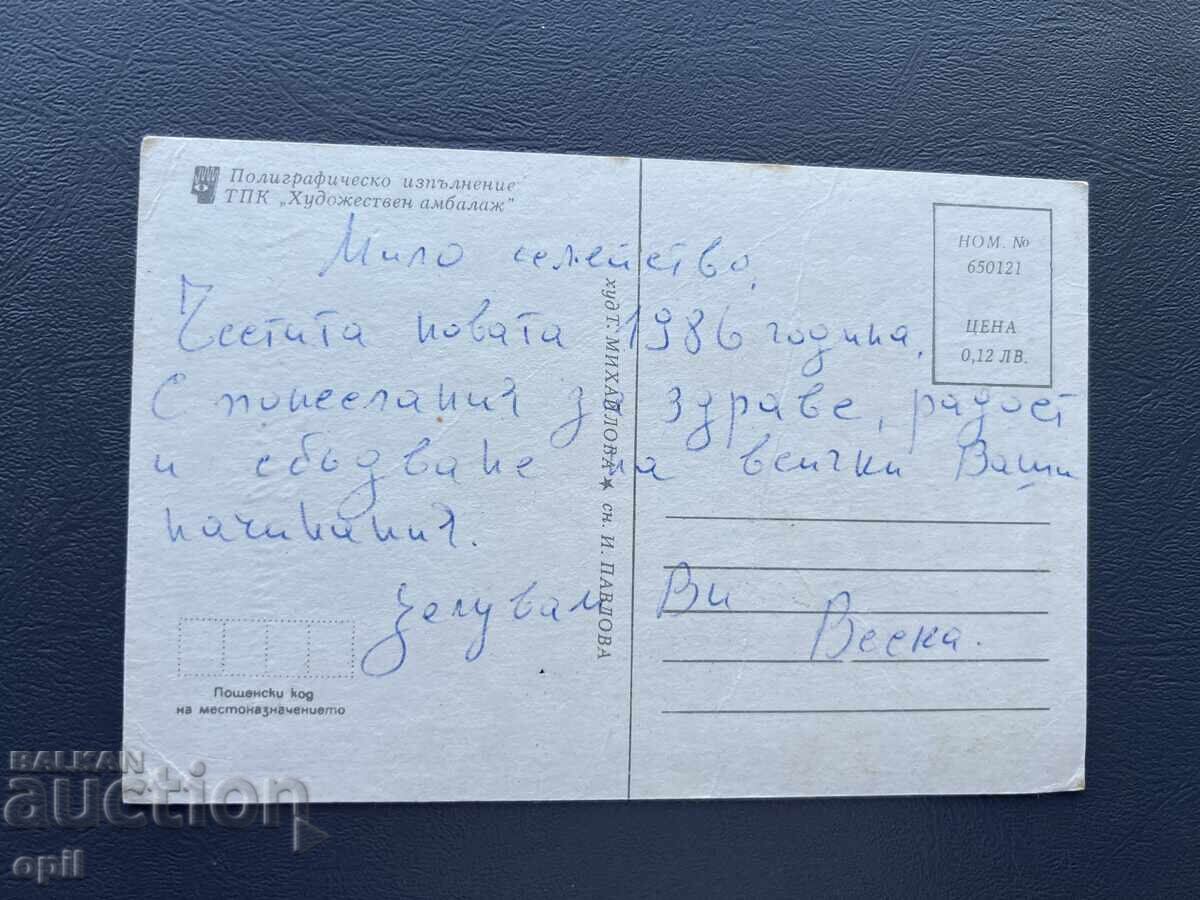 Полиграфическо изпълнение
ТПК „Художествен амбалаж"
Мило семейство,
Честита новата 1986 година.
С пожелания за здраве, радост
и сбъдване на всички Ваши
начинания.
Целувам Ви
Веска.
НОМ. №
650121
ЦЕНА
0,12 ЛВ.
худ. т. МИХАЙЛОВА ★ сн. И. ПАВЛОВА
Пощенски код
на местоназначението
BALKAN
auction
opil